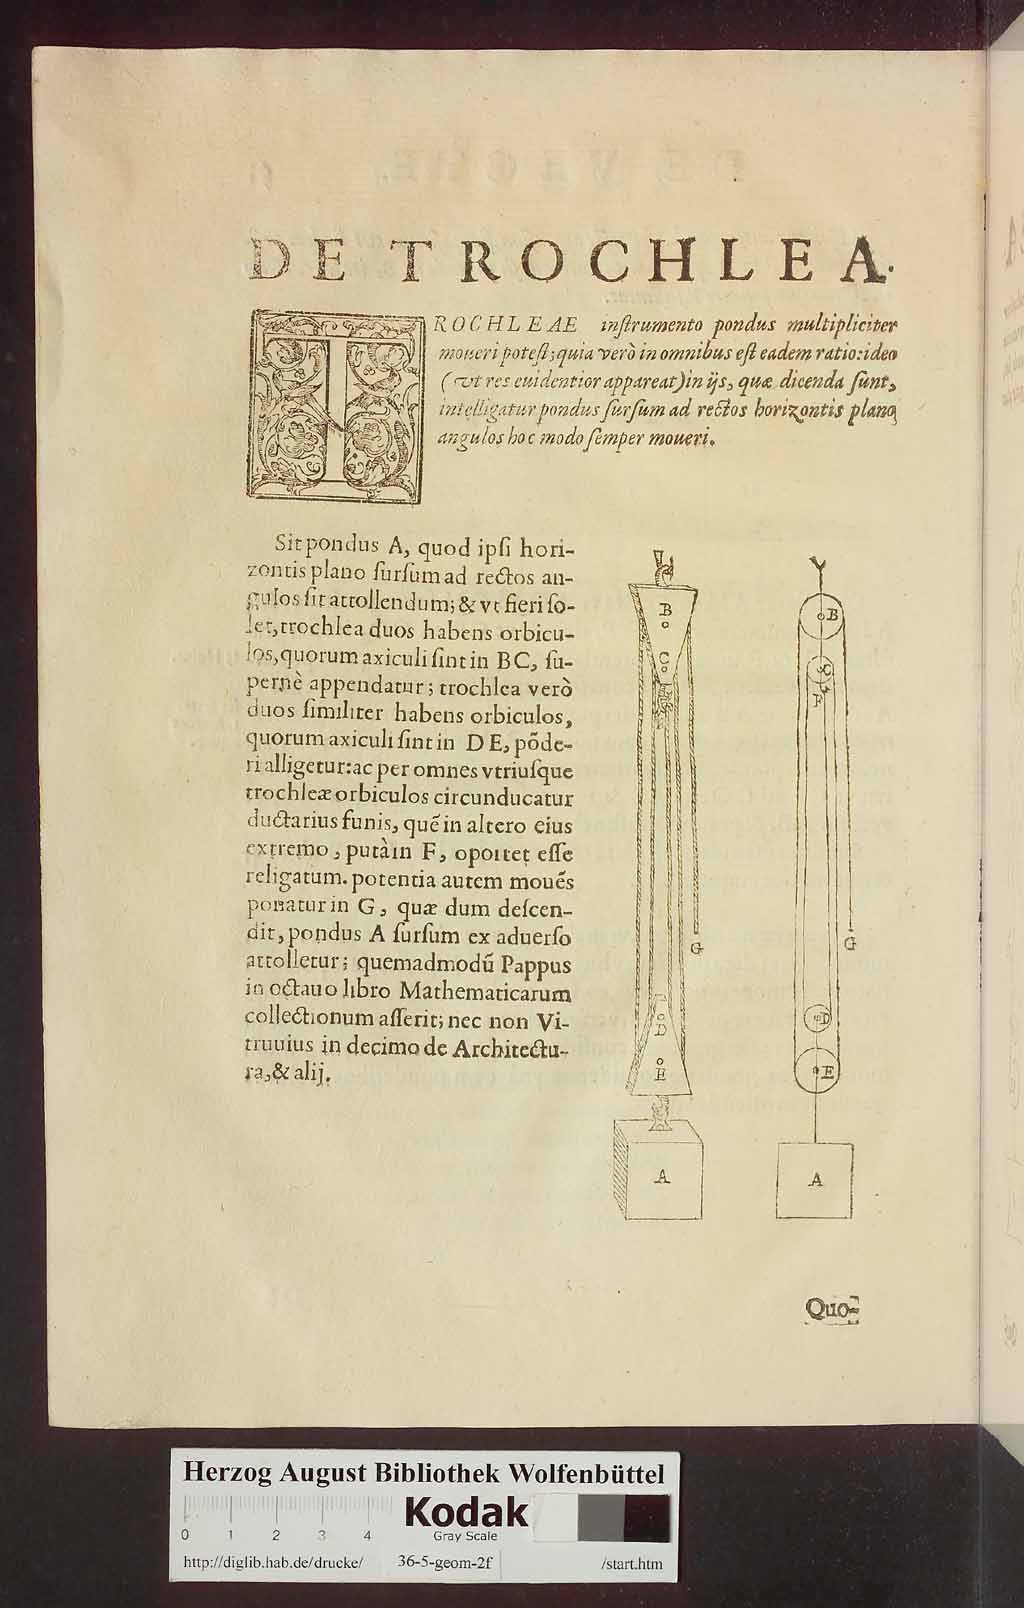 DE TROCHLEA.
TROCHLEAE inſtrumento pondus multipliciter
moueri poteſt; quia verò in omnibus eſt eadem ratio: ideo
(vt res euidentior appareat) in ijs, quæ dicenda ſunt,
intelligatur pondus ſurſum ad rectos horizontis plano
angulos hoc modo ſemper moueri.
Sit pondus A, quod ipſi hori-
zontis plano ſurſum ad rectos an-
gulos ſit attollendum; & vt fieri ſo-
let, trochlea duos habens orbicu-
los, quorum axiculi ſint in BC, ſu-
pernè appendatur; trochlea verò
duos ſimiliter habens orbiculos,
quorum axiculi ſint in DE, põde-
ri alligetur: ac per omnes vtriuſque
trochleæ orbiculos circunducatur
ductarius funis, quẽ in altero eius
extremo, putà in F, oportet eſſe
religatum. potentia autem mouẽs
ponatur in G, quæ dum deſcen-
dit, pondus A ſurſum ex aduerſo
attolletur; quemadmodũ Pappus
in octauo libro Mathematicarum
collectionum aſſerit; nec non Vi-
truuius in decimo de Architectu-
ra, & alij.
B
C
F
G
D
E
A
B
C
F
G
D
E
A
Quo-
Herzog August Bibliothek Wolfenbüttel
Kodak
Gray Scale
0 1 2 3 4
http://diglib.hab.de/drucke/ 36-5-geom-2f /start.htm